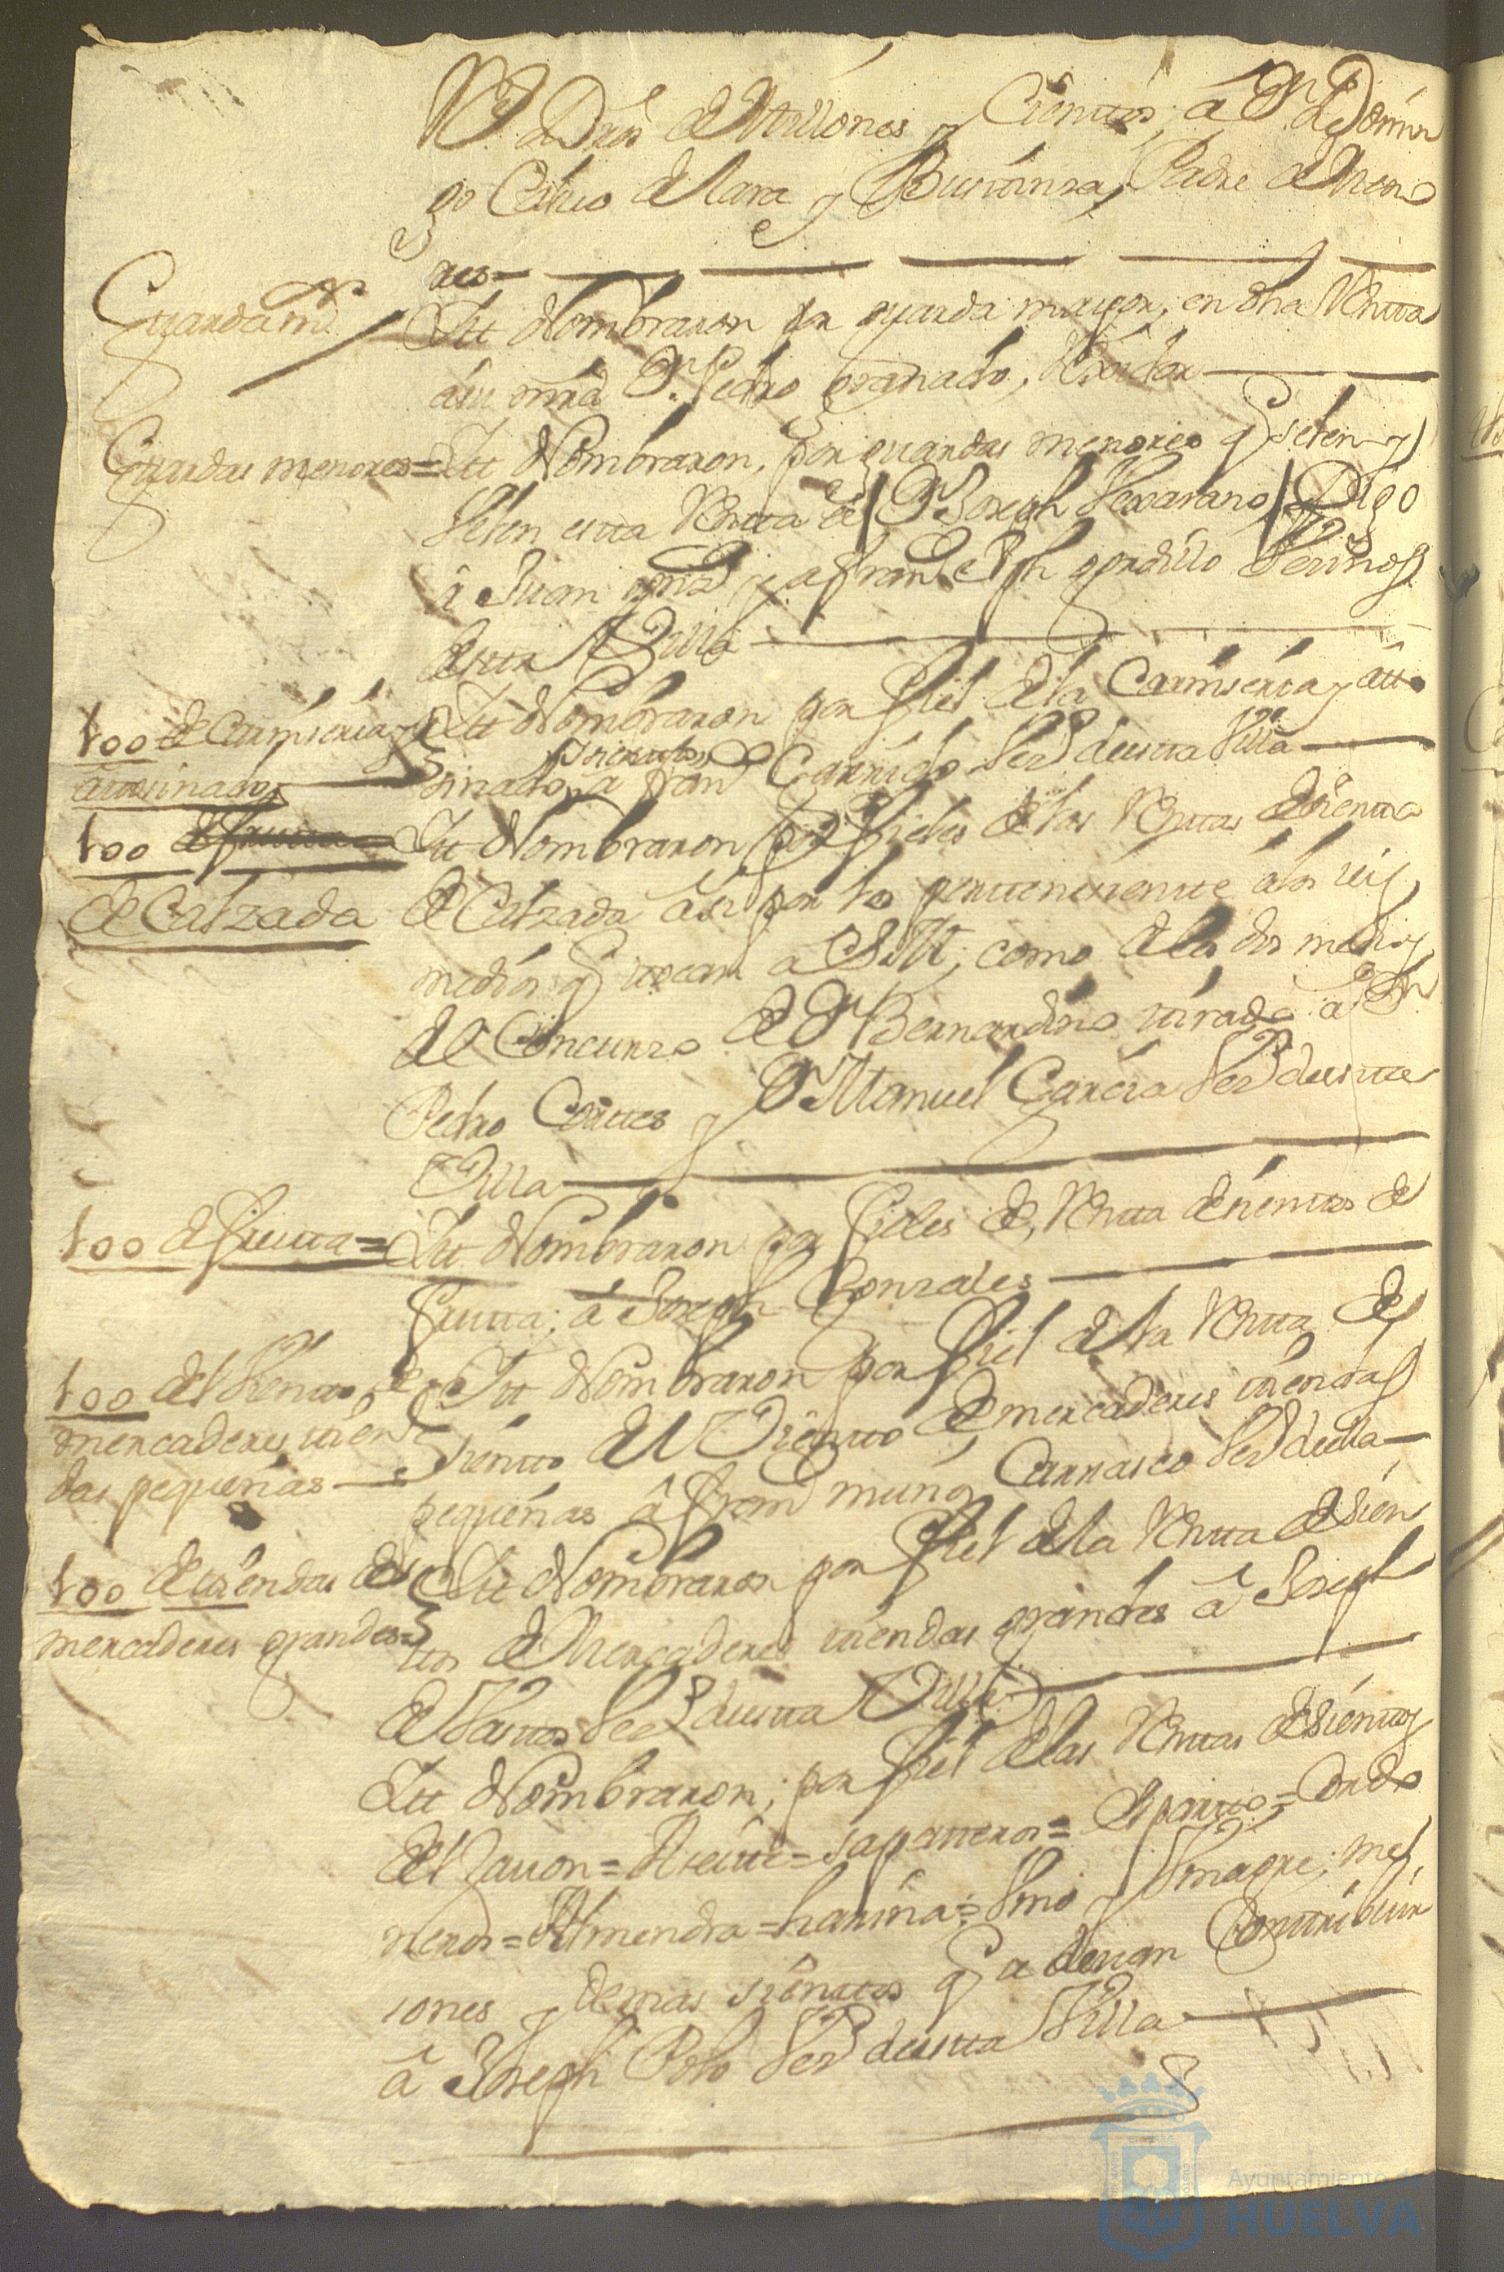 Dros de Millones y Cientos, a Dn Domin
go Calvo de Lara y Bustamza, Padre de Meno
res
Guarda mr
Itt Nombraron por guarda mayor, en dha Rentta
a su mrd Dn Pedro granado, Rexidor
Guardas menores = Itt Nombraron, por guardas menores q zelen y
Selen estta Rentta a Dn Joseph Serrano, Digo
a Juan gonz y a fran de Jph gordillo Vezinos
destta Villa
100 de Carniseria y
attosinado
Itt Nombraron por fiel de la Carniseria y atto
sinado, a Franco Garrido Vezo destta Villa
100 de frutta
de Calzada
Itt Nombraron por fieles de las Renttas de sientto
de Calzada asi por lo pertteneciente a los seis
medios q tocan a S M, como de los dos medios
del Concurzo de Dn Bernardino tirado a Dn
Pedro Corttes y Dn Manuel Garcia Vezo destta
Villa
100 de frutta =
Itt Nombraron por fieles de, Rentta de sienttos de
frutta; a Joseph Gonzales
100 del Vientto de
mercaderes tien
das pequeñas
Itt Nombraron por fiel de la Rentta de
sientto del Vientto de mercaderes tiendas
pequeñas a franco muño Carrasco Vezo de ella
100 de tiendas de
mercaderes grandes
Itt Nombraron por fiel de la Rentta de sien
ttos de Mercaderes tiendas grandes a Joseph
de Santtos Vezo destta Villa
Itt Nombraron; por fiel de las Renttas de sienttos
del Javon = Aseitte = sapatteros = Espartto = Cordo
neros = Almendra = harina = Vino y Vinagre; mes
sones y demas sienttos q a devan Conttribuir
a Joseph Polo Vezo destta Villa
Ayuntamiento de
HUELVA